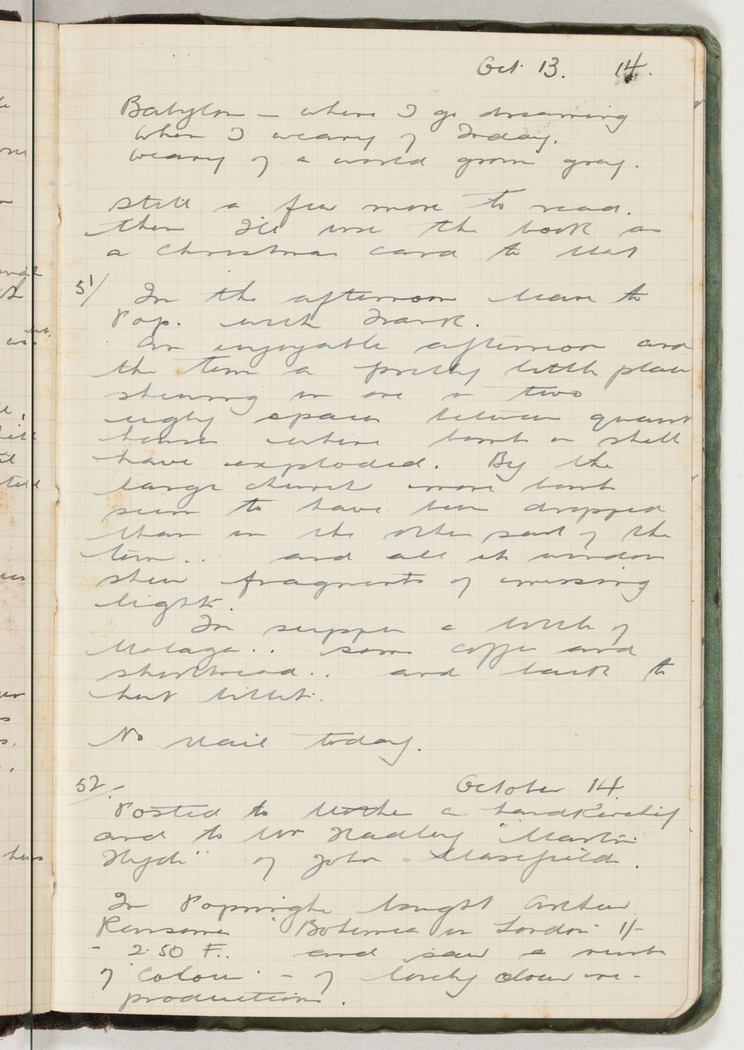 Oct. 13. 14.
Babylon – where I go dreaming
When I weary of Today.
Weary of a world grown grey.
Still a few more to read.
then I'll use the book as
a Christmas card to
51/ In the afternoon leave to
Pop. with Frank.
An enjoyable afternoon and
the town a pretty little place
shewing in one or two
ugly spaces between quaint
houses where bomb or shell
have exploded. By the
large church more bombs
seem to have been dropped
than in the other part of the
town.. and all its windows
shew fragments of missing
lights.
In supper a bottle of
Malaga.. some coffee and
shortbread.. and back to
hut billet.
No mail today.
52/- October 14
Posted to Mother a handkerchief
and to Mr Hadley "Martin
Hyde" of John Masefield.
In Poperinghe bought Arthur
Ransome "Bohemia in London" 1/-
- 2.50 F.. and saw a
of 'Colour' – of lovely colour re-
productions.